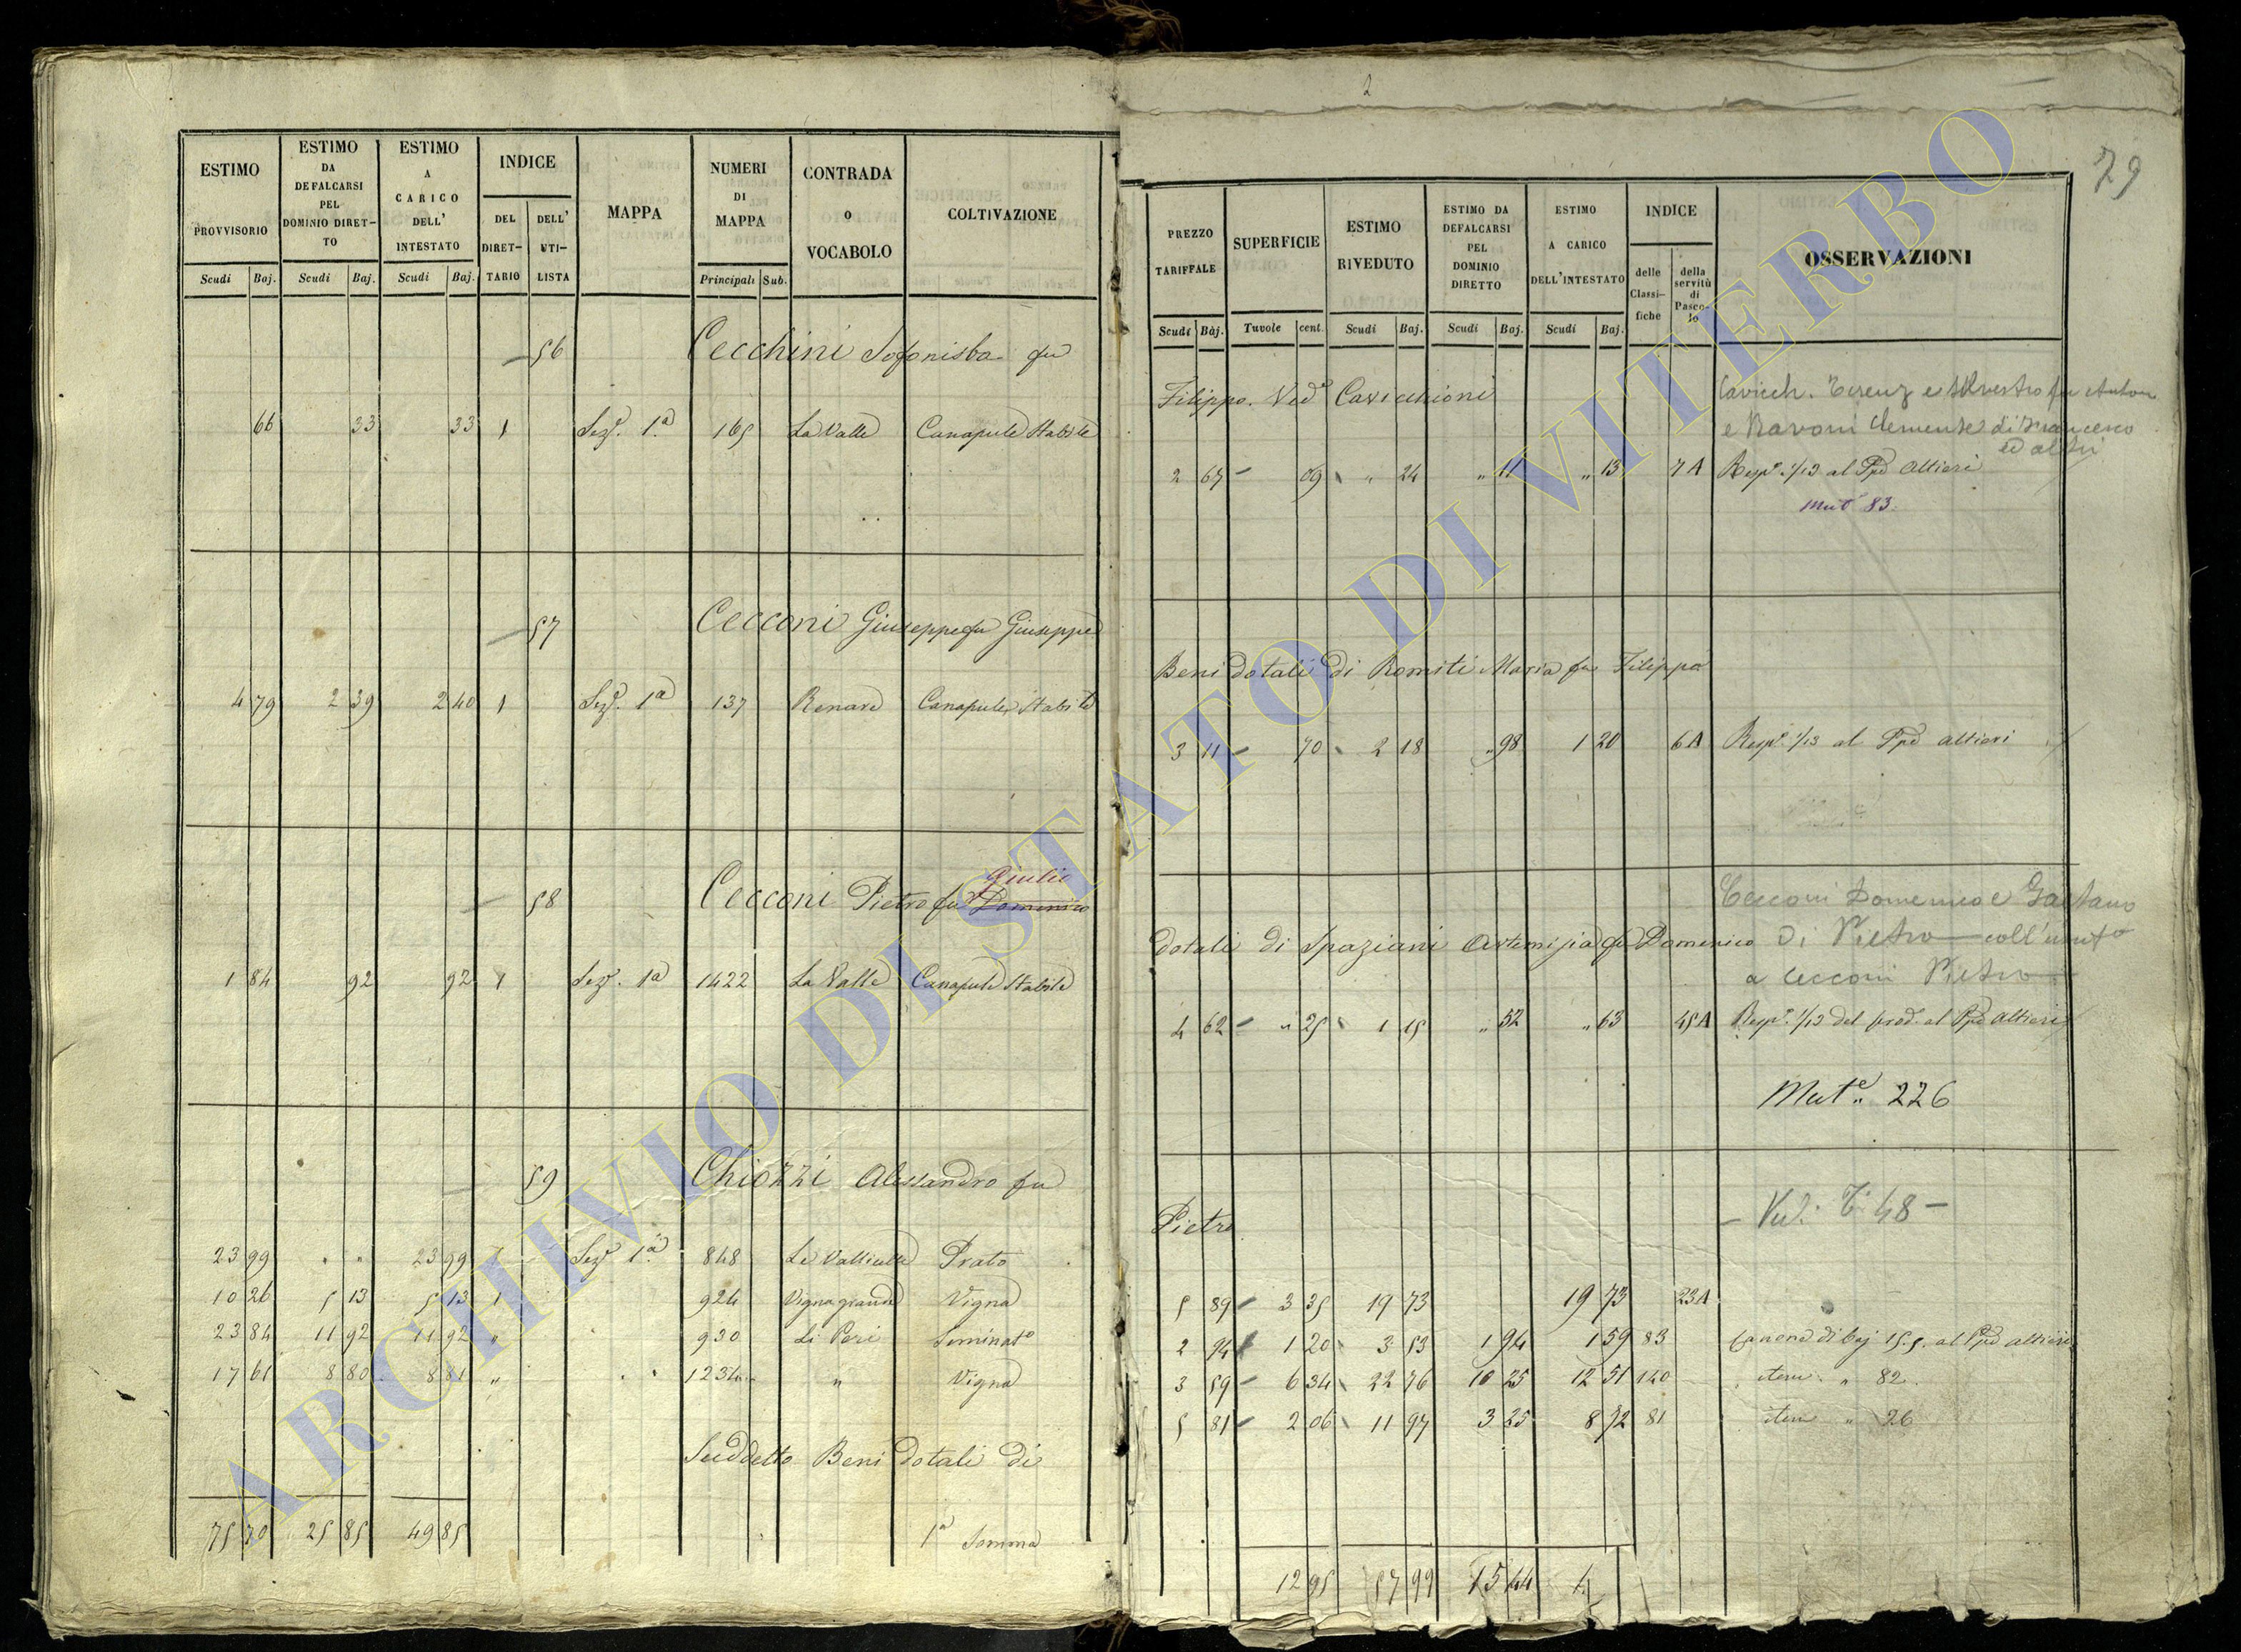 2
79
ESTIMO PROVVISORIO
ESTIMO DA DEFALCARSI PEL DOMINIO DIRETTO
ESTIMO A CARICO DELL' INTESTATO
INDICE
DEL DIRETTARIO
DELL' UTILISTA
MAPPA
NUMERI DI MAPPA
CONTRADA o VOCABOLO
COLTIVAZIONE
Scudi Baj. Scudi Baj. Scudi Baj. Principali Sub.
56 Cecchini Sofonisba fu
66 33 33 1 Seze. 1a 165 La Valle Canapule Stabile
57 Cecconi Giuseppe fu Giuseppe
4 79 2 39 2 40 1 Seze. 1a 137 Renare Canapule Stabile
Giulio
58 Cecconi Pietro fu Domenico
1 84 92 92 1 Seze. 1a 1422 La Valle Canapule Stabile
59 Chiozzi Alessandro fu
23 99 " " 23 99 Seze 1a 848 Le Vallicelle Prato
10 26 5 13 5 13 1 924 Vigna grande Vigna
23 84 11 92 11 92 " 930 Li Peri Seminato
17 61 8 80 8 81 " 1234 " Vigna
Suddetto Beni dotali di
75 70 25 85 49 85 1a Somma
PREZZO TARIFFALE
SUPERFICIE
ESTIMO RIVEDUTO
ESTIMO DA DEFALCARSI PEL DOMINIO DIRETTO
ESTIMO A CARICO DELL'INTESTATO
INDICE
delle Classifiche
della servitù di Pascolo
OSSERVAZIONI
Scudi Baj. Tavole cent. Scudi Baj. Scudi Baj. Scudi Baj.
Filippo Veda Cavicchioni
Cavicch. Terenz e Silvestro fu Anton
e Ravoni Clemente di Francesco
ed altri
2 67 09 " 24 " 11 " 13 7A Rispe. 1/13 al Ppe Altieri
Mute 83.
Beni dotali di Romiti Maria fu Filippo
3 11 70 2 18 " 98 1 20 6A Rispe. 1/13 al Ppe Altieri
Cecconi Domenico e Gaetano
dotali di Spaziani Artemisia fu Domenico
Di Pietro coll'usufo
a Cecconi Pietro
4 62 " 25 1 15 " 52 " 63 45A Rispe. 1/13 del prod. al Ppe Altieri
Mute. 226
Pietro
- Vol. T. 48 -
5 89 3 35 19 73 19 73 23A
2 94 1 20 3 53 1 94 1 59 83 Canone di baj 15.5. al Ppe Altieri
3 59 6 34 22 76 10 25 12 51 140 item " 82
5 81 2 06 11 97 3 25 8 72 81 item " 26
12 95 57 99 15 44 4
ARCHIVIO DI STATO DI VITERBO